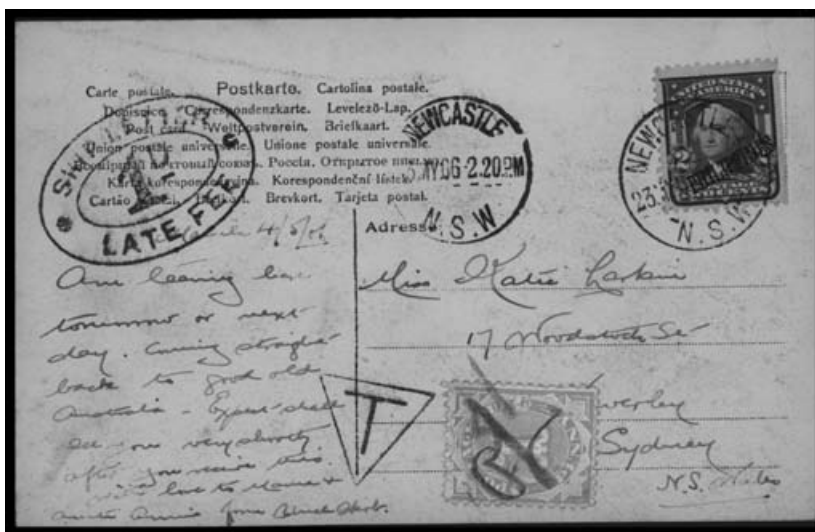 Carte postale. Postkarte. Cartolina postale.
Dopisnice Correspondenzkarte. Levelező-Lap.
Post card Weltpostverein. Briefkaart.
Union postale universelle. Unione postale universale.
Россія. Открытое
Karta korespondencyjna. Korespondenční lístek.
Cartão Brefkort. Brevkort. Tarjeta postal.
LATE FEE
NEWCASTLE
MY 06 2.20PM
N.S.W
UNITED STATES
AMERICA
2
N.S.W
4/5/06
Address
Am leaving here
tomorrow or next
day. Coming straight
back to good old
Australia. Expect shall
see you very shortly
after you receive this
with love to Mama &
Miss Katie Larkin
17 Woodstock St
Waverley
Sydney
N.S. Wales
T